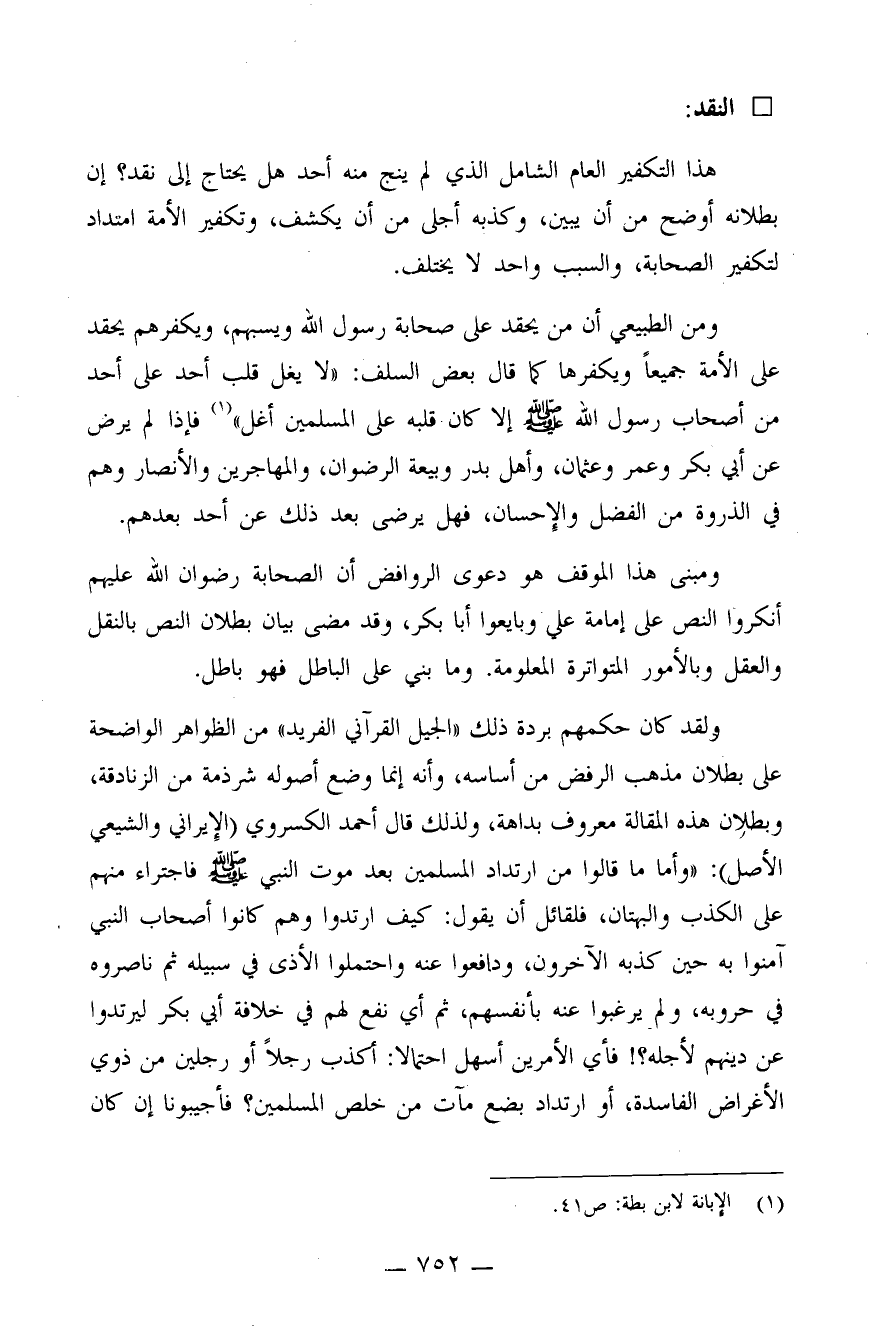 □ النقد:
هذا التكفير العام الشامل الذي لم ينج منه أحد هل يحتاج إلى نقد؟ إن
بطلانه أوضح من أن يبين، وكذبه أجلى من أن يكشف، وتكفير الأمة امتداد
لتكفير الصحابة، والسبب واحد لا يختلف.
ومن الطبيعي أن من يحقد على صحابة رسول الله ويسبهم، ويكفرهم يحقد
على الأمة جميعاً ويكفرها كما قال بعض السلف: «لا يغل قلب أحد على أحد
من أصحاب رسول الله ﷺ إلا كان قلبه على المسلمين أغل»(١) فإذا لم يرض
عن أبي بكر وعمر وعثمان، وأهل بدر وبيعة الرضوان، والمهاجرين والأنصار وهم
في الذروة من الفضل والإحسان، فهل يرضى بعد ذلك عن أحد بعدهم.
ومبنى هذا الموقف هو دعوى الروافض أن الصحابة رضوان الله عليهم
أنكروا النص على إمامة علي وبايعوا أبا بكر، وقد مضى بيان بطلان النص بالنقل
والعقل وبالأمور المتواترة المعلومة. وما بني على الباطل فهو باطل.
ولقد كان حكمهم بردة ذلك «الجيل القرآني الفريد» من الظواهر الواضحة
على بطلان مذهب الرفض من أساسه، وأنه إنما وضع أصوله شرذمة من الزنادقة،
وبطلان هذه المقالة معروف بداهة، ولذلك قال أحمد الكسروي (الإيراني والشيعي
الأصل): «وأما ما قالوا من ارتداد المسلمين بعد موت النبي ﷺ فاجتراء منهم
على الكذب والبهتان، فلقائل أن يقول: كيف ارتدوا وهم كانوا أصحاب النبي
آمنوا به حين كذبه الآخرون، ودافعوا عنه واحتملوا الأذى في سبيله ثم ناصروه
في حروبه، ولم يرغبوا عنه بأنفسهم، ثم أي نفع لهم في خلافة أبي بكر ليرتدوا
عن دينهم لأجله؟! فأي الأمرين أسهل احتمالا: أكذب رجلاً أو رجلين من ذوي
الأغراض الفاسدة، أو ارتداد بضع مآت من خلص المسلمين؟ فأجيبونا إن كان
(١) الإبانة لابن بطة: ص٤١.
— ٧٥٢ —